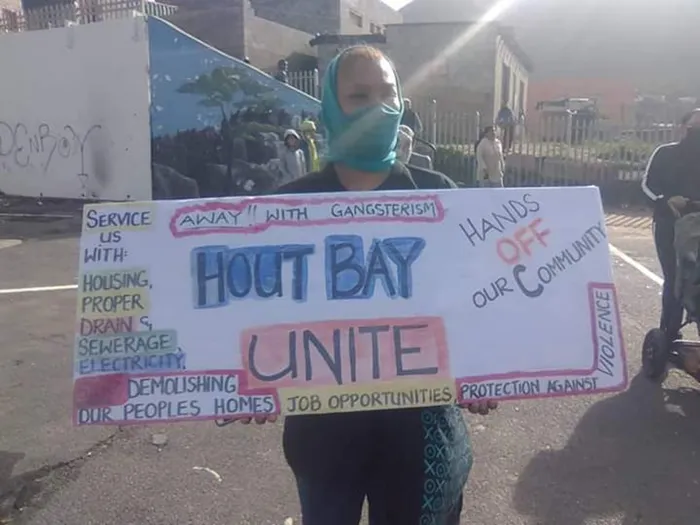 SERVICE
US
WITH:
HOUSING,
PROPER
DRAINS,
SEWERAGE,
ELECTRICITY,
DEMOLISHING
OUR PEOPLES HOMES
AWAY!! WITH GANGSTERISM
HOUT BAY
UNITE
JOB OPPORTUNITIES,
HANDS
OFF
OUR COMMUNITY
PROTECTION AGAINST
VIOLENCE